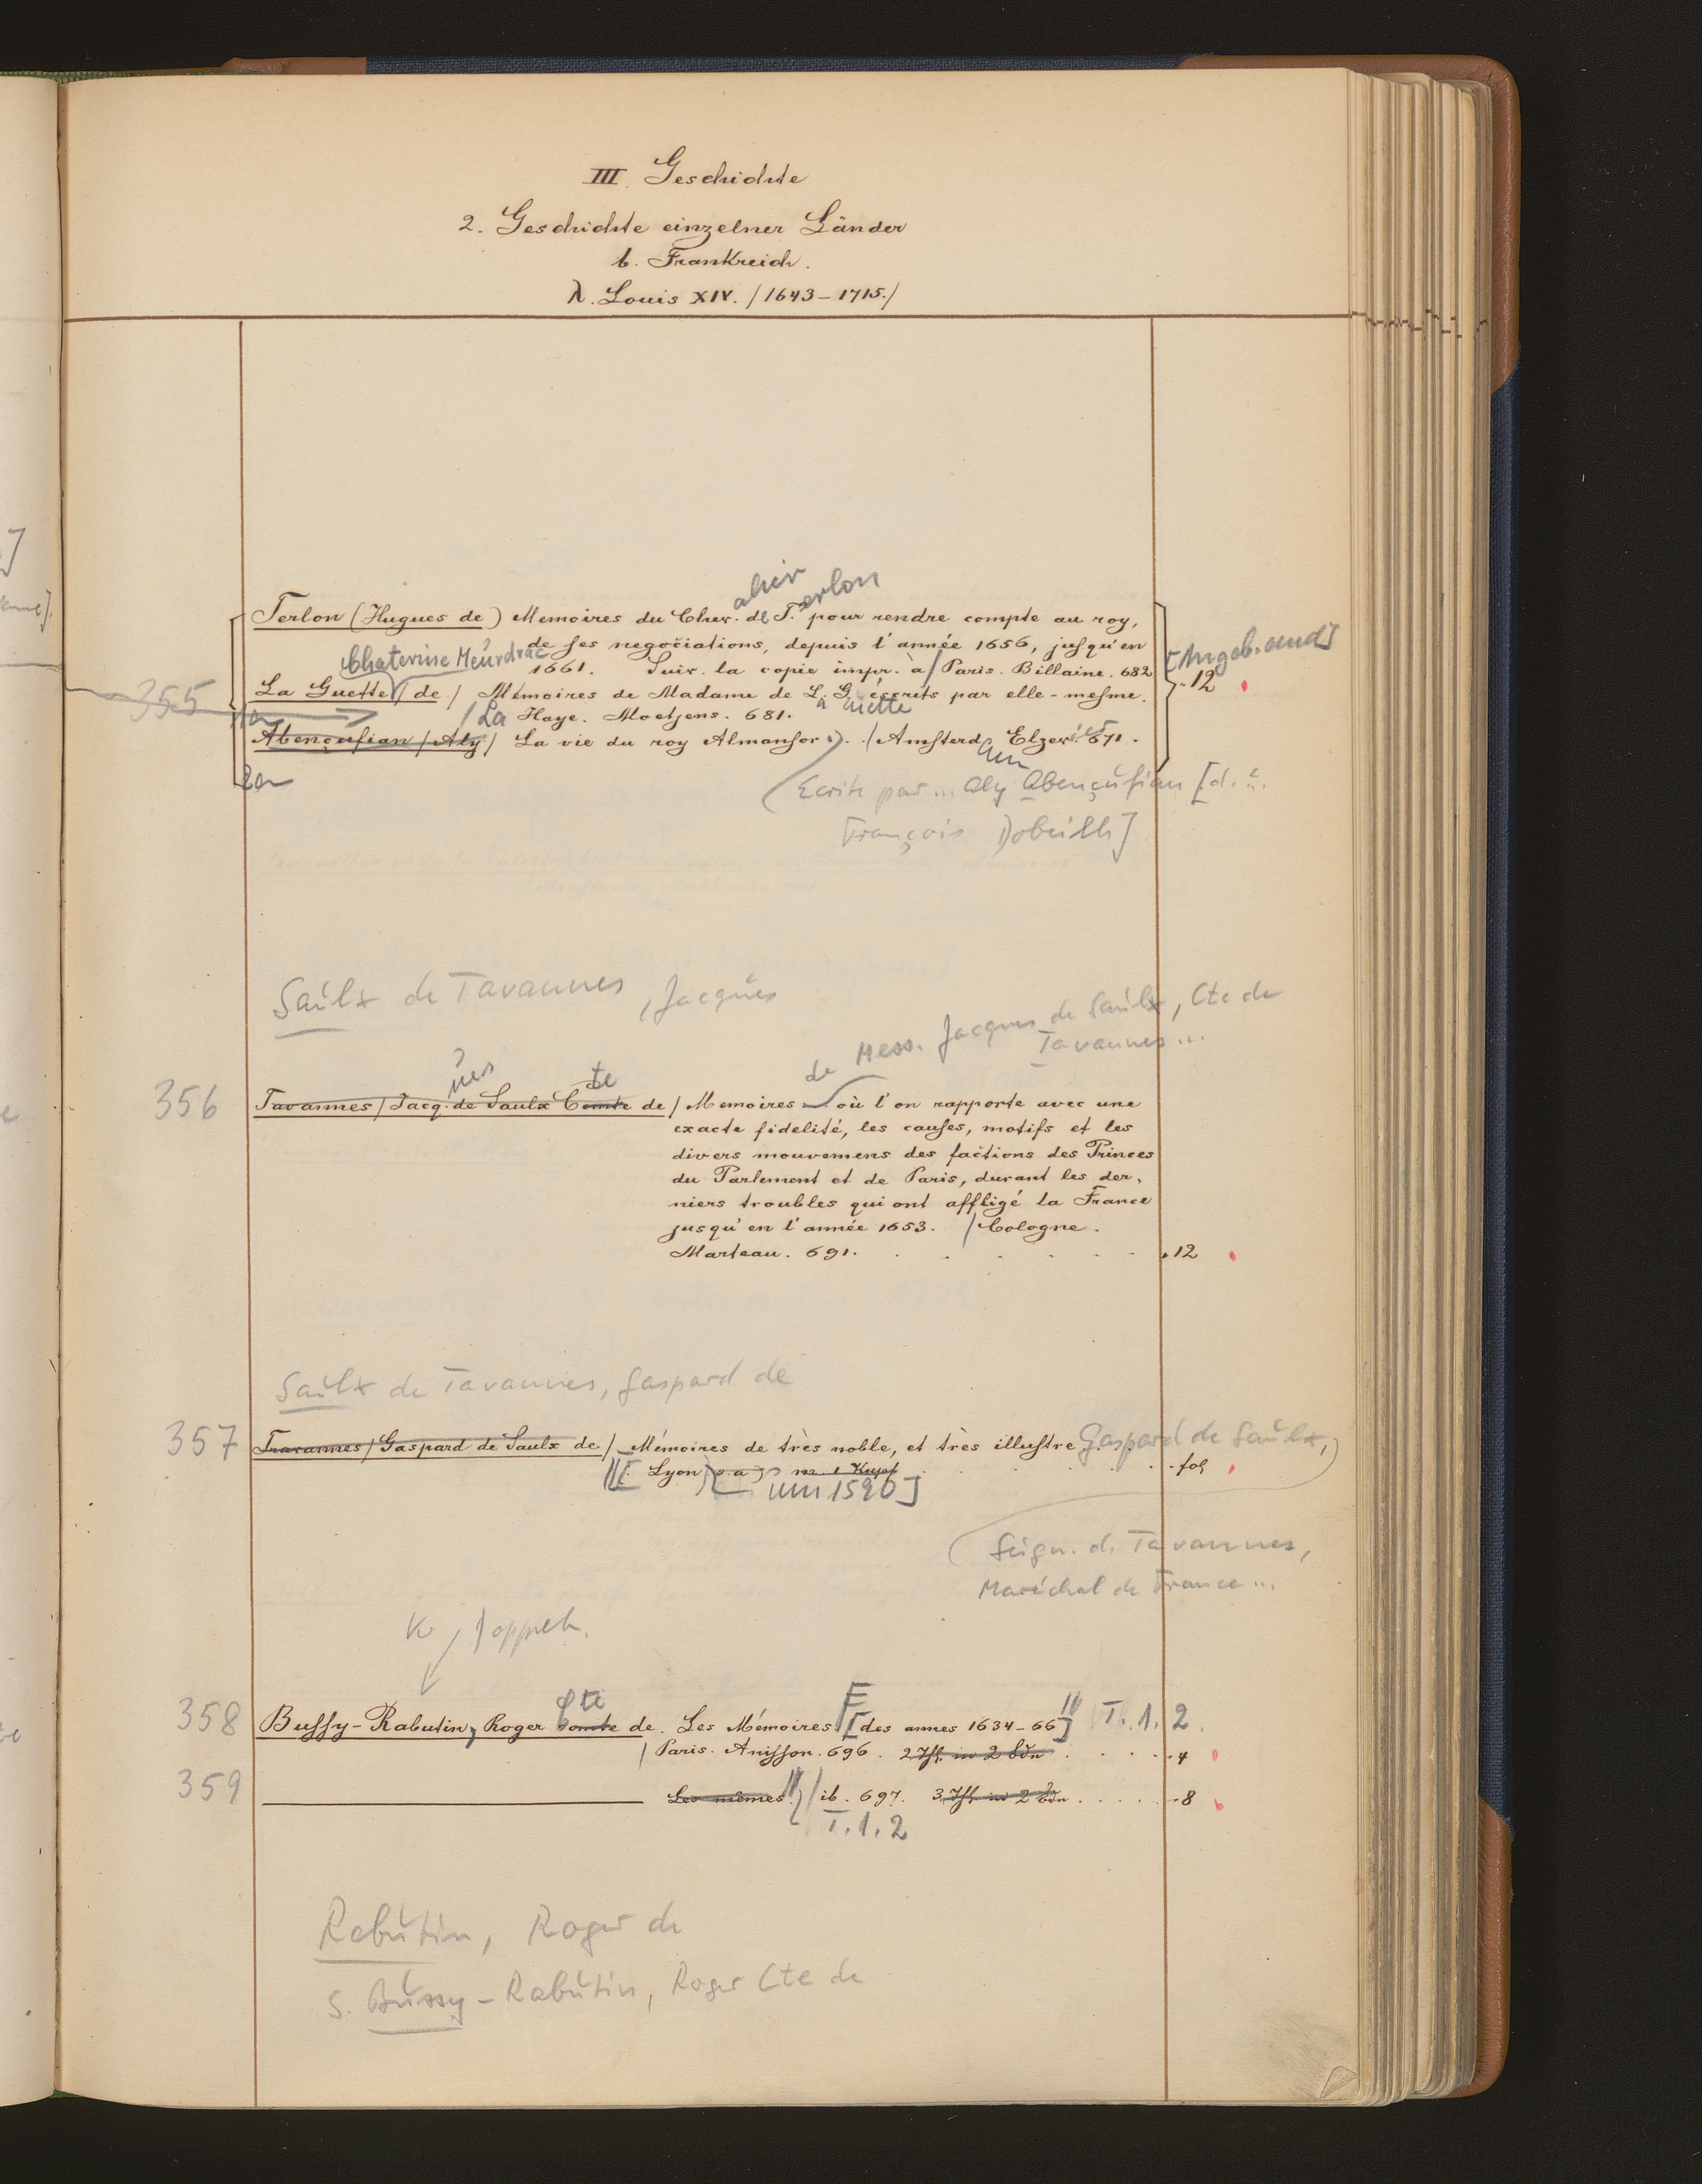 III. Geschichte
2. Geschichte einzelner Länder
b. Frankreich.
λ. Louis XIV. /1643-1715./
alier erlon
Terlon (Hugues de) Memoires du Chev. de T. pour rendre compte au roy,
de ses negociations, depuis l'année 1656, jusqu'en
Chaterine Meurdrac
1661. Suiv. la copie impr. à / Paris. Billaine. 682
[Angeb. and]
355 La Guette / de / Mémoires de Madame de L. G. écrits par elle-mesme. . 12
a uette
/ La Haye. Moetjens. 681.
Abençufian / Aly / La vie du roy Almansor. / Amsterd. Elzev. 671.
am
Ecrite par ... Aly Abençufian [d. i.
François Dobeilh]
Saulx de Tavannes, Jacques
de Mess. Jacques de Saulx, Cte de
Tavannes ...
ues te
356 Tavannes / Jacq. de Saulx Comte de / Memoires où l'on rapporte avec une
exacte fidelité, les causes, motifs et les
divers mouvemens des factions des Princes
du Parlement et de Paris, durant les der-
niers troubles qui ont affligé la France
jusqu'en l'année 1653. / Cologne.
Marteau. 691. . . . . . . 12
Saulx de Tavannes, Gaspard de
357 Travannes / Gaspard de Saulx de / Mémoires de très noble, et très illustre Gaspard de Saulx,
[Lyon s. a. m. 1 Kupf . . . . fol
um 1590]
Seign. de Tavannes,
Maréchal de France ...
358 Bussy-Rabutin, Roger Comte de. Les Mémoires [des annes 1634-66] T. 1. 2.
Cte
/ Paris. Anisson. 696. 2 Thl. in 2 Bdn . . . . 4
359 Les mêmes / ib. 697. 3 Thl. in 2 Bdn . . . . 8
T. 1. 2
Rabutin, Roger de
s. Bussy-Rabutin, Roger Cte de